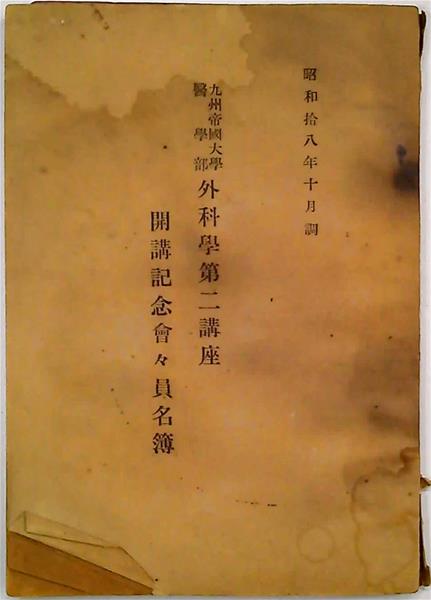 昭和拾八年十月調
九州帝國大學
醫學部
外科學第二講座
開講記念會々員名簿